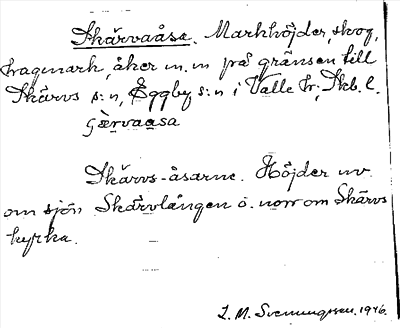 Skärvaåsa. Markhöjder, skog,
hagmark, åker m. m på gränsen till
Skärvs s:n, Eggby s:n i Valle hr, Skb. l.
Skärvs-åsarne. Höjder nv.
om sjön Skärvlången o. norr om Skärvs
kyrka.
L. M. Svenungsson. 1946.